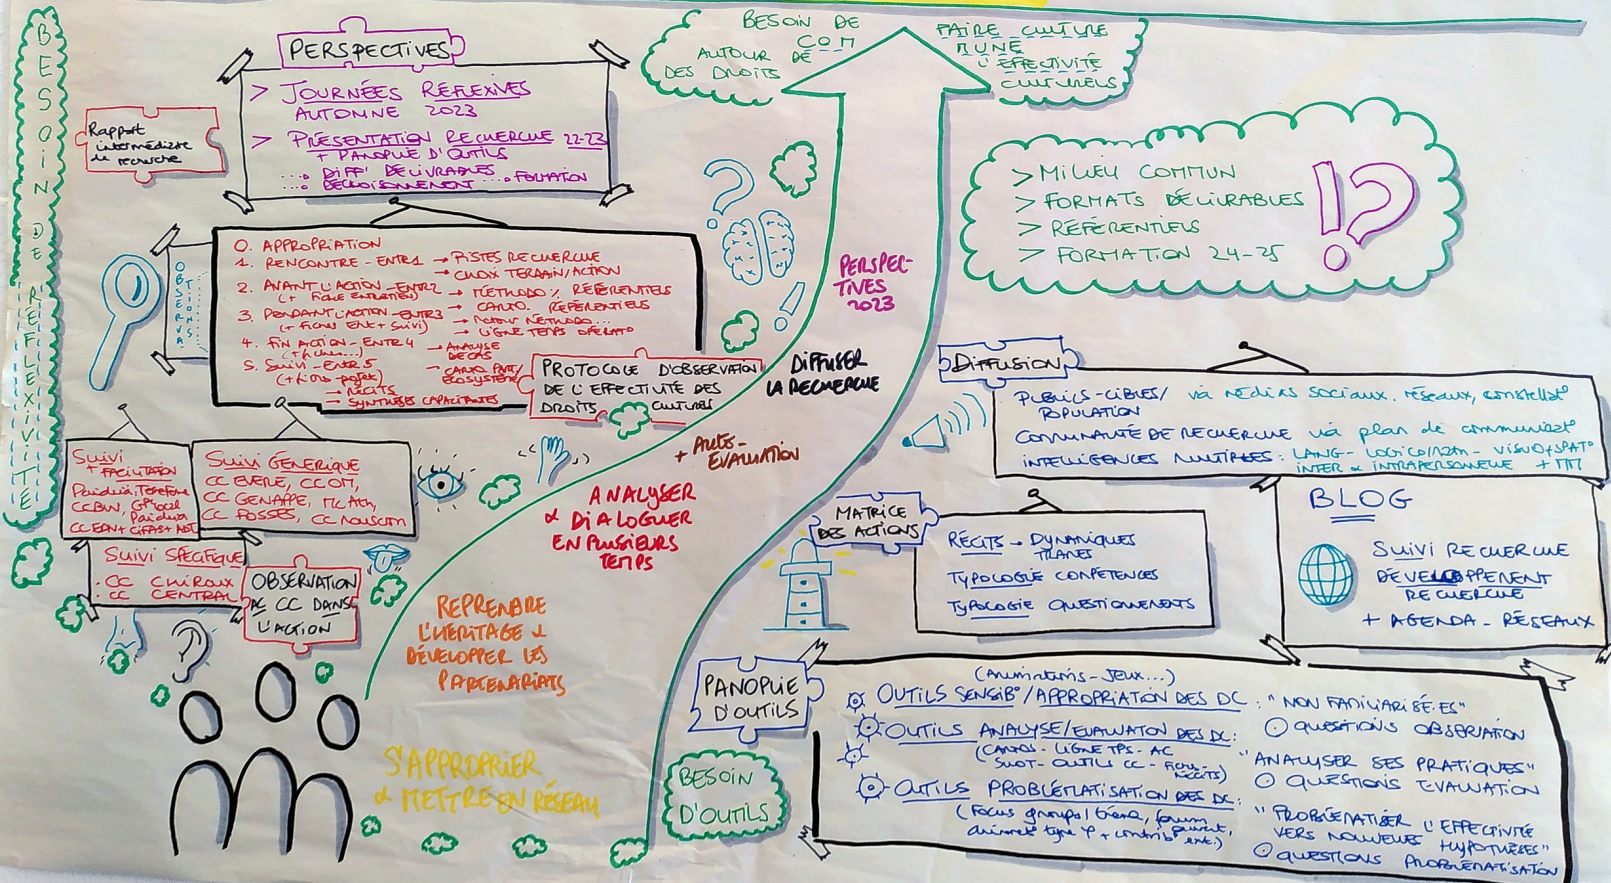 BESOIN DE RÉFLEXIVITÉ
PERSPECTIVES
> JOURNÉES RÉFLEXIVES
AUTOMNE 2023
> PRÉSENTATION RECHERCHE 22-23
+ PANOPLIE D'OUTILS
...° DIFF' DÉLIVRABLES
...° DÉCLOISONNEMENT ...° FORMATION
Rapport
intermédiaire
de recherche
BESOIN DE
COM
AUTOUR DE
DES DROITS
FAIRE CULTURE
D'UNE
L'EFFECTIVITÉ
CULTURELS
> MILIEU COMMUN
> FORMATS DÉLIVRABLES
> RÉFÉRENTIELS
> FORMATION 24-25
!?
?
!
OBSERVATIONS
0. APPROPRIATION
1. RENCONTRE - ENTR1 → PISTES RECHERCHE
→ CHOIX TERRAIN/ACTION
2. AVANT L'ACTION - ENTR2 → MÉTHODO % RÉFÉRENTIELS
(+ FICHE ENTRETIEN) → CARTO. RÉFÉRENTIELS
3. PENDANT L'ACTION - ENTR3
(+ FICHES ENT + SUIVI) → RETOUR MÉTHODO...
→ LIGNE TEMPS OPÉRAT°
4. FIN ACTION - ENTR4 → ANALYSE
(+ fiches...) DE CAS
5. SUIVI - ENTR5 → CARTO PART/
ÉCOSYSTÈME
→ RÉCITS
→ SYNTHÈSES CAPACITANTES
PROTOCOLE D'OBSERVATION
DE L'EFFECTIVITÉ DES
DROITS CULTURELS
PERSPEC-
TIVES
2023
DIFFUSER
LA RECHERCHE
+ AUTO-
ÉVALUATION
ANALYSER
& DIALOGUER
EN PLUSIEURS
TEMPS
REPRENDRE
L'HÉRITAGE &
DÉVELOPPER LES
PARTENARIATS
S'APPROPRIER
& METTRE EN RÉSEAU
Suivi
+ FACILITATION
CCBW,
Paideia
SUIVI GÉNÉRIQUE
CC EVERE, CCOM,
CC GENAPPE, MC Ath,
CC FOSSES, CC Mouscron
SUIVI SPÉCIFIQUE
. CC CHIROUX
. CC CENTRAL
OBSERVATION
AC CC DANS
L'ACTION
DIFFUSION
PUBLICS-CIBLES/ via médias sociaux, réseaux, constellat°
POPULATION
COMMUNAUTÉ DE RECHERCHE via plan de communicat°
INTELLIGENCES MULTIPLES : LANG - LOGICO/MATH - VISUO/SPAT°
INTER & INTRAPERSONNELLE
MATRICE
DES ACTIONS
RÉCITS → DYNAMIQUES
TRAMES
TYPOLOGIE COMPÉTENCES
TYPOLOGIE QUESTIONNEMENTS
BLOG
SUIVI RECHERCHE
DÉVELOPPEMENT
RECHERCHE
+ AGENDA - RÉSEAUX
PANOPLIE
D'OUTILS
BESOIN
D'OUTILS
(Animations - Jeux...)
OUTILS SENSIB°/APPROPRIATION DES DC : "NON FAMILIARISÉ.ES"
QUESTIONS OBSERVATION
OUTILS ANALYSE/ÉVALUATION DES DC :
(CARTOS - LIGNE TPS - AC "ANALYSER SES PRATIQUES"
SWOT - OUTILS CC - Fiche - RÉCITS) QUESTIONS ÉVALUATION
OUTILS PROBLÉMATISATION DES DC : "PROBLÉMATISER L'EFFECTIVITÉ
(Focus groupe/ forum VERS NOUVELLES HYPOTHÈSES"
QUESTIONS PROBLÉMATISATION